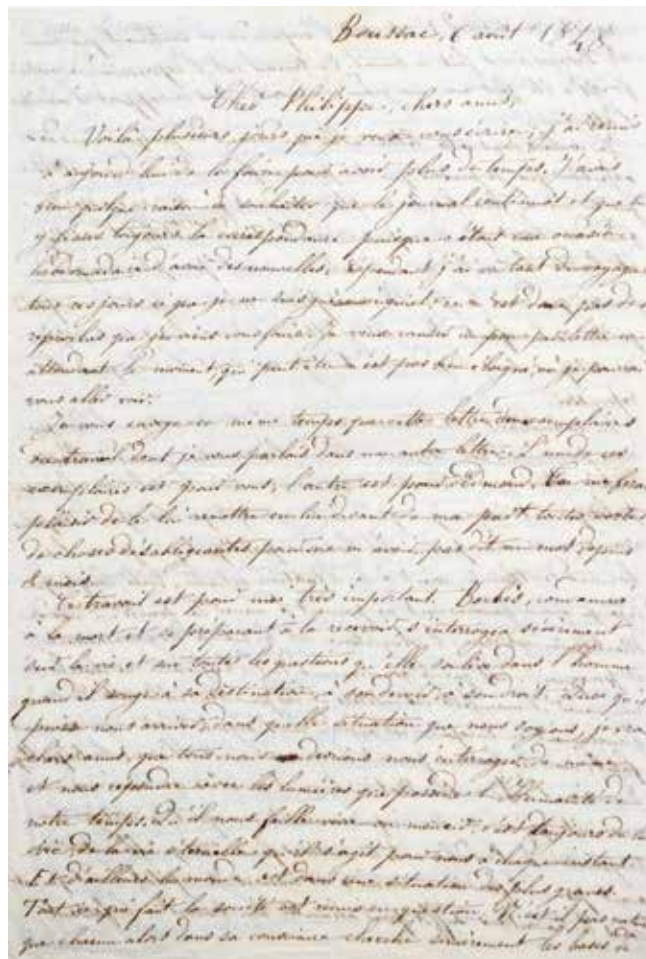 Boussac, 6 août 1848
Cher Philippe, chers amis,
Voilà plusieurs jours que je veux vous écrire; j'ai remis
à aujourd'hui de le faire pour avoir plus de temps. J'avais
quelque raison de souhaiter que le journal continuât et que tu
y fisses toujours la correspondance puisque c'était une occasion
hebdomadaire d'avoir des nouvelles. cependant j'ai vu tant de voyageurs
tous ces jours ce que je ne suis inquiet; ce n'est donc pas des
reproches que je viens vous faire. Je vous envoie un peu lettre en
attendant le moment qui peut être n'est pas bien éloigné où je pourrai
vous aller voir.
Je vous envoye en même temps que cette lettre deux exemplaires
d'un travail dont je vous parlais dans une autre lettre; l'un de ces
exemplaires est pour vous, l'autre est pour Edmond. Tu me feras
plaisir de le lui remettre en lui disant de ma part toutes sortes
de choses désobligeantes pour ne m'avoir pas dit un mot depuis
2 mois.
Ce travail est pour moi très important. Barbès, condamné
à la mort et se préparant à la recevoir, s'interrogea sincèrement
sur la vie et sur toutes les questions qu'elle soulève dans l'homme
quand il songe à sa destination, à son devoir, à son droit. Quoi qu'il
puisse nous arriver, dans quelle situation que nous soyons, je crois
chers amis, que tous nous devons nous interroger de même
et nous répondre avec les lumières que possède l'Humanité de
notre temps. Qu'il nous faille vivre ou mourir, c'est toujours de la
vie, de la vie éternelle qu'il s'agit pour nous à chaque instant.
Et d'ailleurs le monde est dans une situation des plus graves.
Tout ce qui fait la société est remis en question. N'est-il pas
que chacun alors dans sa conscience cherche sincèrement les bases de